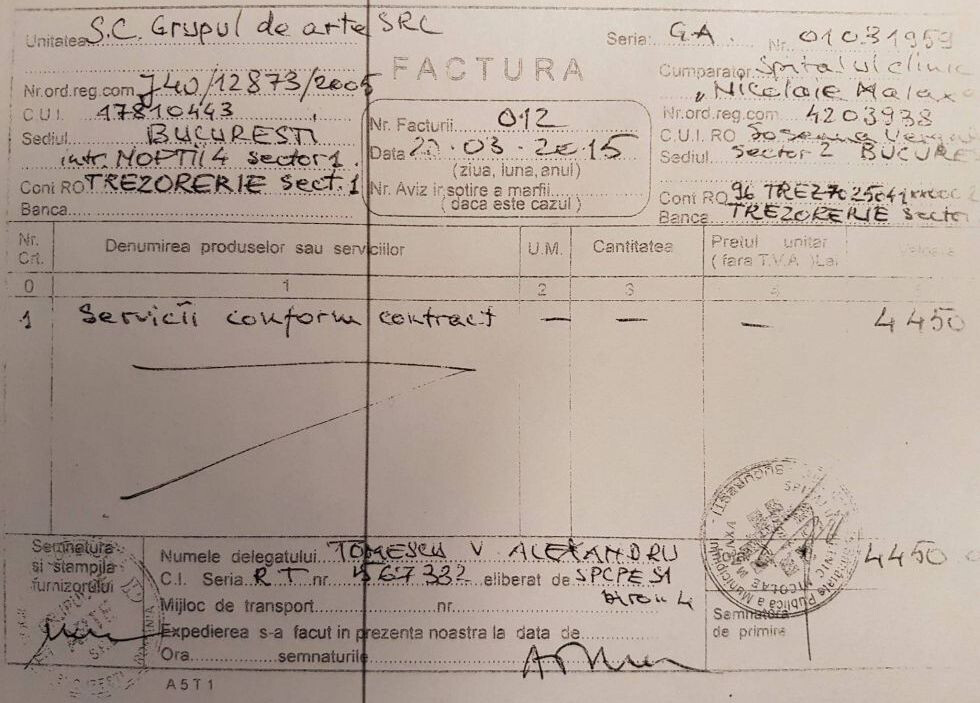 Unitatea S.C. Grupul de arte SRL
Nr.ord.reg.com. J40/12873/2005
C U I. 17810443
Sediul BUCURESTI
intr. NOPTII 4 sector 1
Cont RO TREZORERIE sect. 1
Banca
FACTURA
Nr. Facturii 012
Data 20.03.2015
(ziua, luna, anul)
Nr. Aviz insotire a marfii
(daca este cazul)
Seria: GA. Nr. 01031959
Cumparator Spitalul clinic
"Nicolaie Malaxa
Nr.ord.reg.com 4203938
C.U.I. RO Soseaua
Sediul sector 2 BUCURE
Cont RO 96 TREZ
Banca TREZORERIE sector
Nr. Crt. Denumirea produselor sau serviciilor U.M. Cantitatea Pretul unitar
(fara T.V.A.) Lei
0 1 2 3 4
1 Servicii conform contract — — — 4450
Semnatura
si stampila
furnizorului
Numele delegatului TOMESCU V ALEXANDRU
C.I. Seria RT nr 567332 eliberat de SPCPE S1
birou 4
Mijloc de transport nr.
Expedierea s-a facut in prezenta noastra la data de
Ora semnaturile
4450
Semnatura
de primire
A5T1